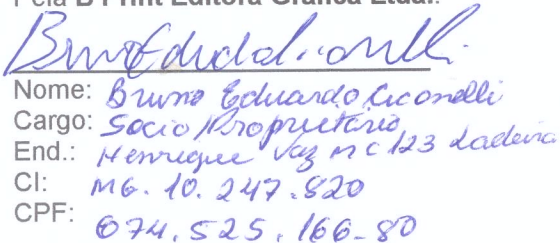 Pela B Print Editora Gráfica Ltda.:
Nome: Bruno Eduardo Ciconelli
Cargo: Socio/Proprietario
End.: Henrique Vaz nº 123 Ladeira
CI: MG. 10.247.820
CPF: 074.525.166-80